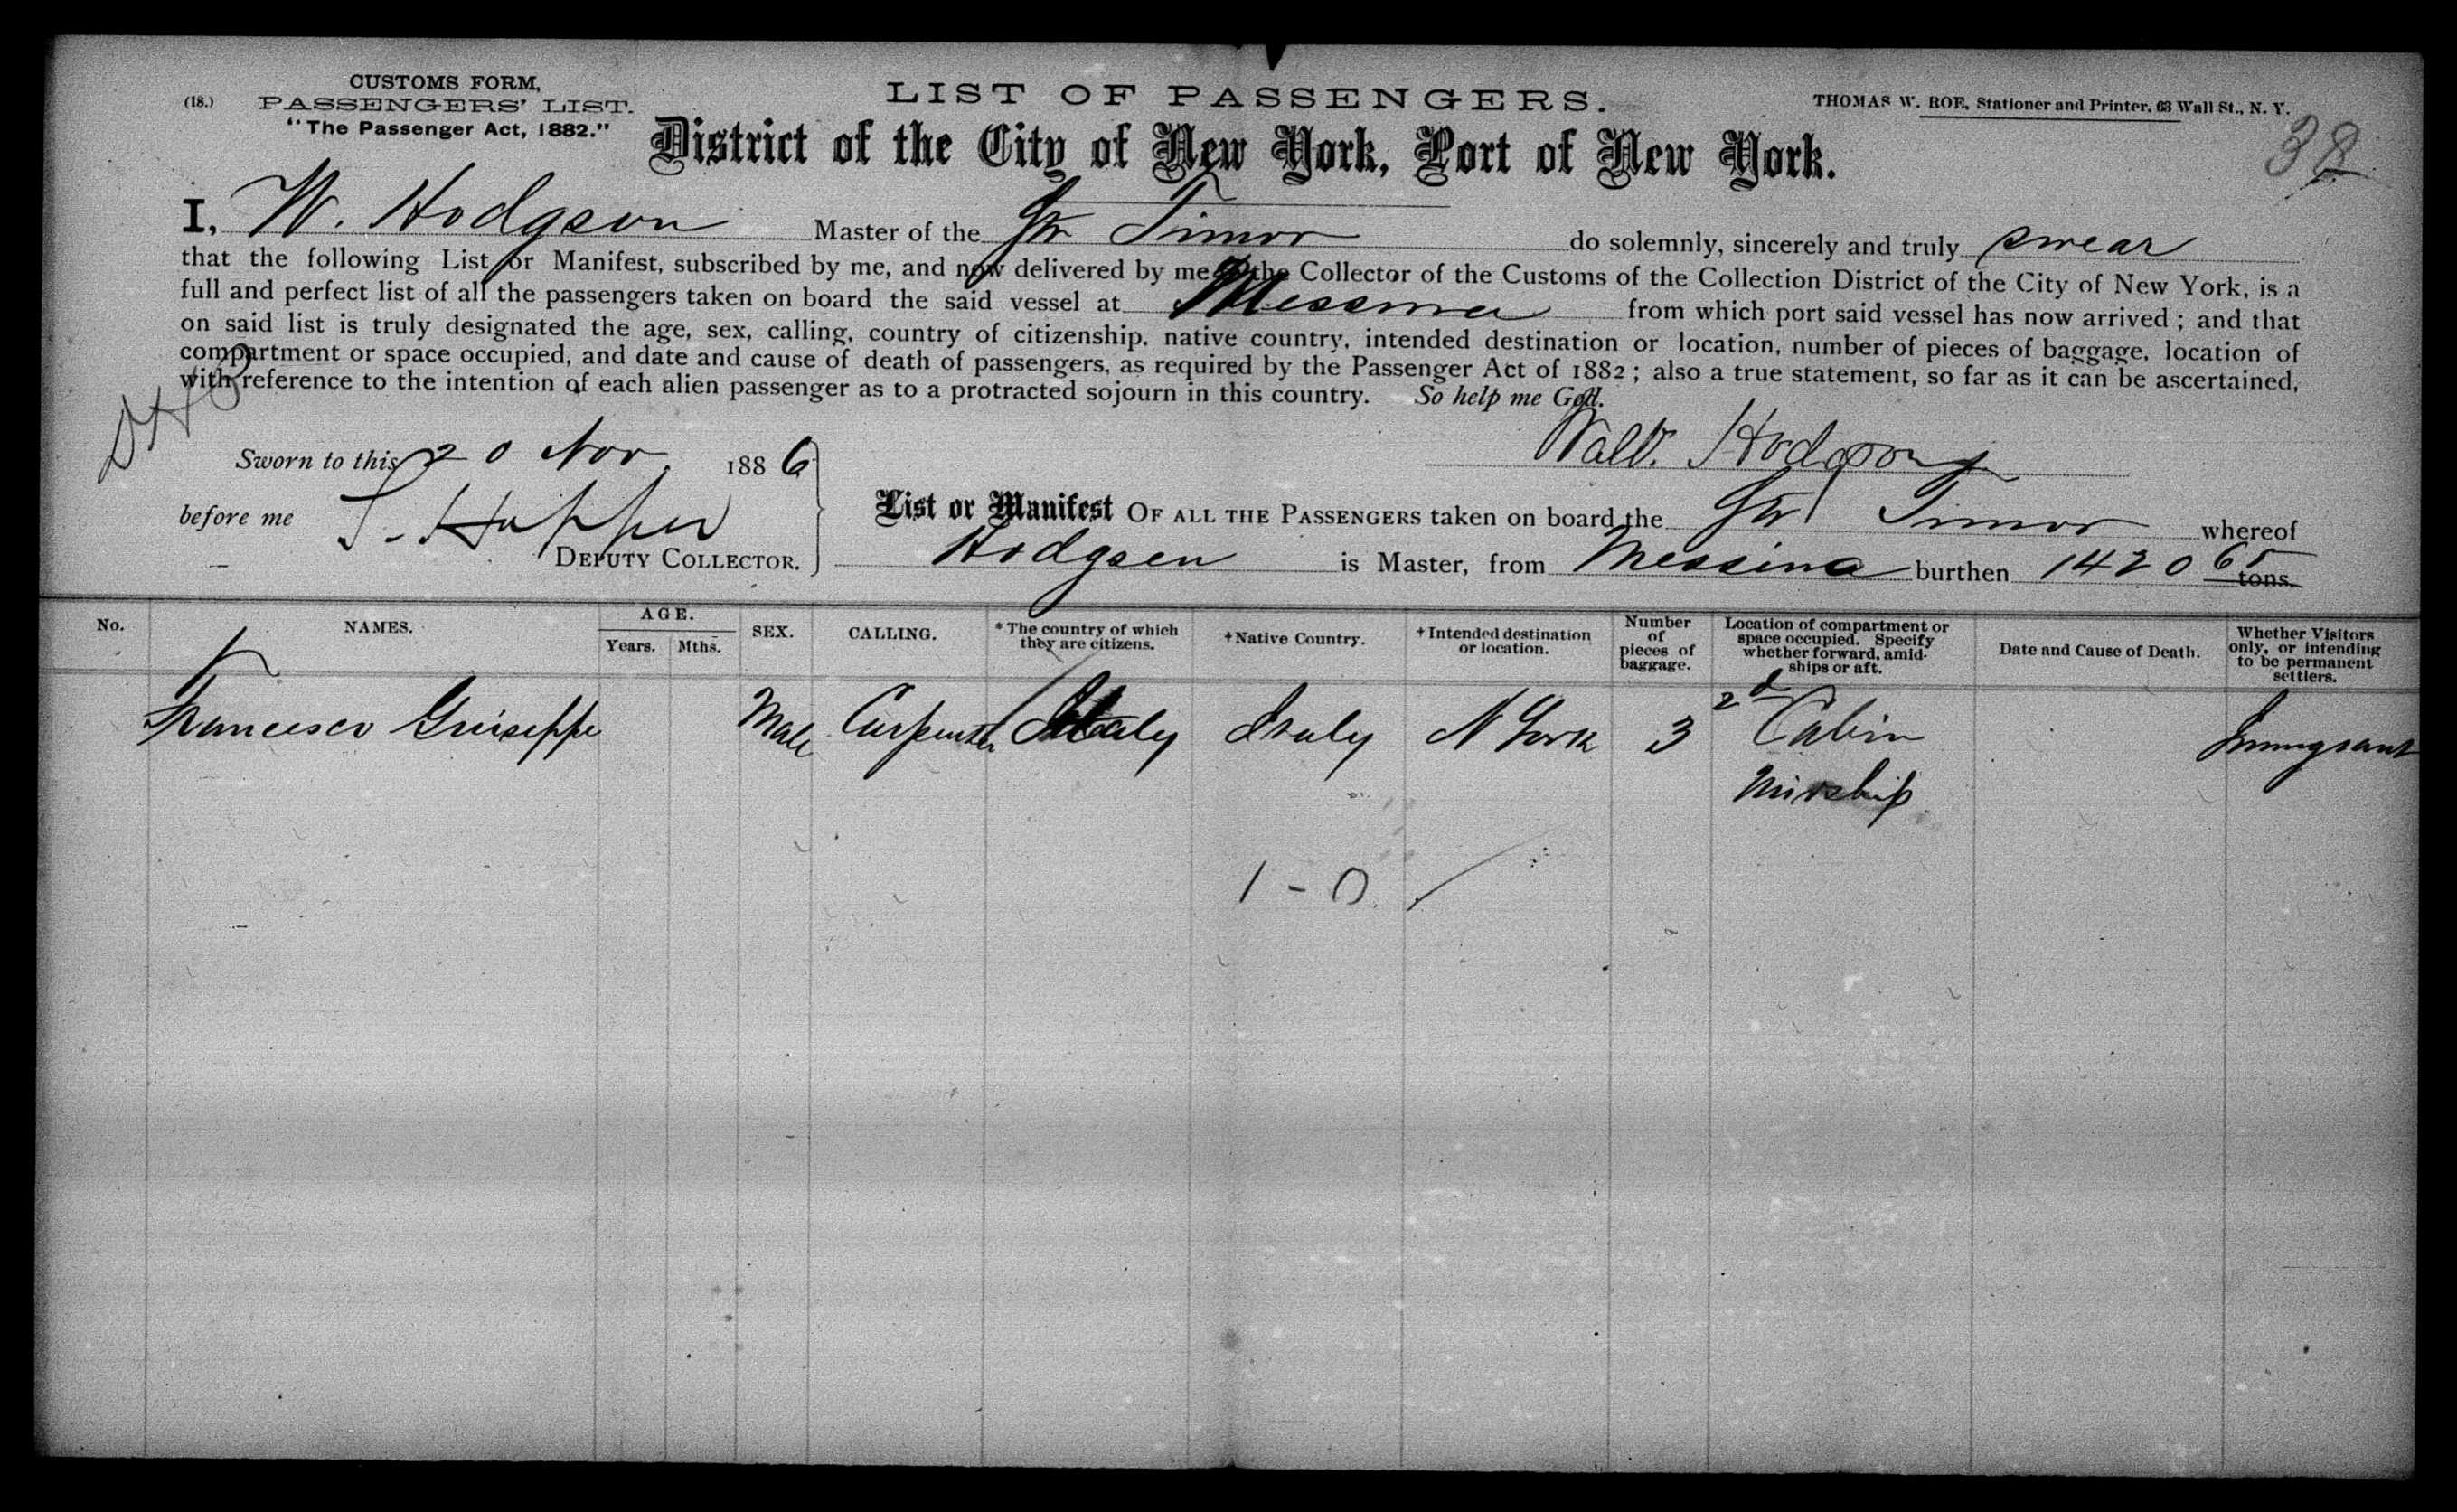 (18.)
CUSTOMS FORM,
PASSENGERS' LIST.
"The Passenger Act, 1882."
LIST OF PASSENGERS.
THOMAS W. ROE, Stationer and Printer, 63 Wall St., N. Y.
District of the City of New York, Port of New York.
38
I, W. Hodgson Master of the Str Timor do solemnly, sincerely and truly swear
that the following List or Manifest, subscribed by me, and now delivered by me to the Collector of the Customs of the Collection District of the City of New York, is a
full and perfect list of all the passengers taken on board the said vessel at Messina from which port said vessel has now arrived; and that
on said list is truly designated the age, sex, calling, country of citizenship, native country, intended destination or location, number of pieces of baggage, location of
compartment or space occupied, and date and cause of death of passengers, as required by the Passenger Act of 1882; also a true statement, so far as it can be ascertained,
with reference to the intention of each alien passenger as to a protracted sojourn in this country. So help me God.
Hodgson
Sworn to this 20 Nov. 1886
before me
DEPUTY COLLECTOR.
List or Manifest OF ALL THE PASSENGERS taken on board the Str Timor whereof
Hodgsen is Master, from Messina burthen 1420 65 tons.
No.
NAMES.
AGE.
Years. Mths.
SEX.
CALLING.
* The country of which
they are citizens.
+Native Country.
+Intended destination
or location.
Number
of
pieces of
baggage.
Location of compartment or
space occupied. Specify
whether forward, amid-
ships or aft.
Date and Cause of Death.
Whether Visitors
only, or intending
to be permanent
settlers.
Francesco Guiseppe Male Carpenter Italy Italy N York 3 2d Cabin Immigrant
1 - 0